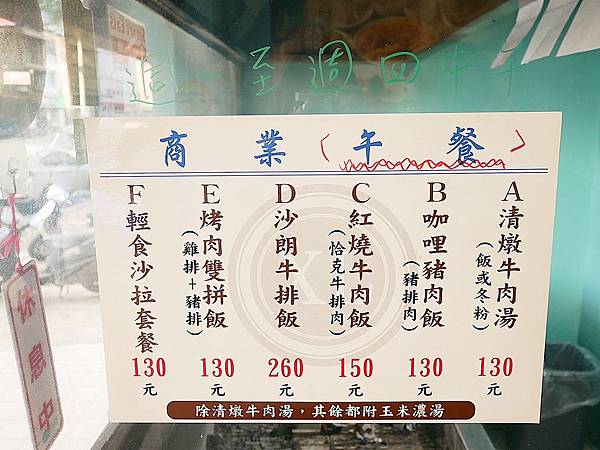 週一至週四中午
商業（午餐）
A清燉牛肉湯
（飯或冬粉）
130元
B咖哩豬肉飯
（豬排肉）
130元
C紅燒牛肉飯
（恰克牛排肉）
150元
D沙朗牛排飯
260元
E烤肉雙拼飯
（雞排+豬排）
130元
F輕食沙拉套餐
130元
除清燉牛肉湯，其餘都附玉米濃湯
休息中